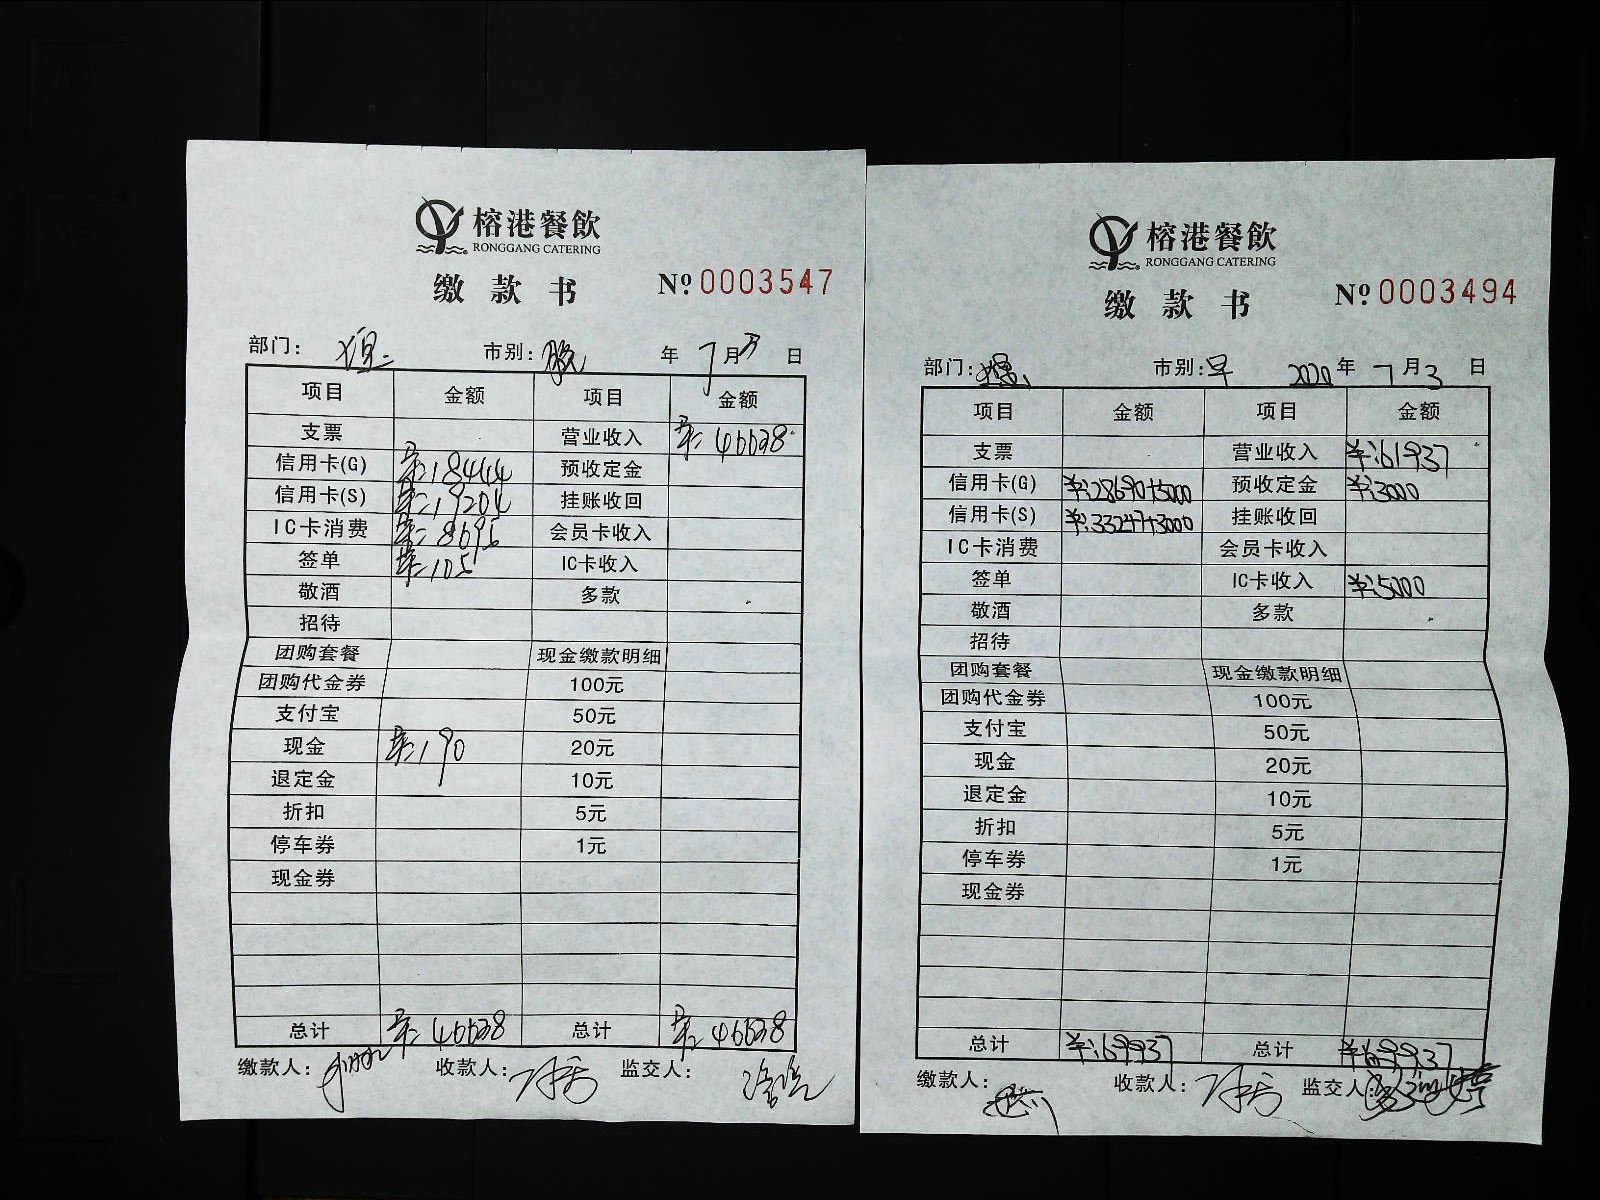 榕港餐飲
RONGGANG CATERING
缴款书 Nº 0003547
部门: 市别: 晚 年 7月3日
项目 金额 项目 金额
支票 营业收入 ¥:46638
信用卡(G) ¥:18444 预收定金
信用卡(S) ¥:19204 挂账收回
IC卡消费 ¥:8695 会员卡收入
签单 ¥:105 IC卡收入
敬酒 多款
招待
团购套餐 现金缴款明细
团购代金券 100元
支付宝 50元
现金 ¥:190 20元
退定金 10元
折扣 5元
停车券 1元
现金券
总计 ¥:46638 总计 ¥:46638
缴款人: 收款人: 监交人:
榕港餐飲
RONGGANG CATERING
缴款书 Nº 0003494
部门: 市别: 早 2020年7月3日
项目 金额 项目 金额
支票 营业收入 ¥:61937
信用卡(G) ¥:28690+5000 预收定金 ¥:3000
信用卡(S) ¥:33247+3000 挂账收回
IC卡消费 会员卡收入
签单 IC卡收入 ¥:5000
敬酒 多款
招待
团购套餐 现金缴款明细
团购代金券 100元
支付宝 50元
现金 20元
退定金 10元
折扣 5元
停车券 1元
现金券
总计 ¥:69937 总计 ¥:69937
缴款人: 收款人: 监交人: